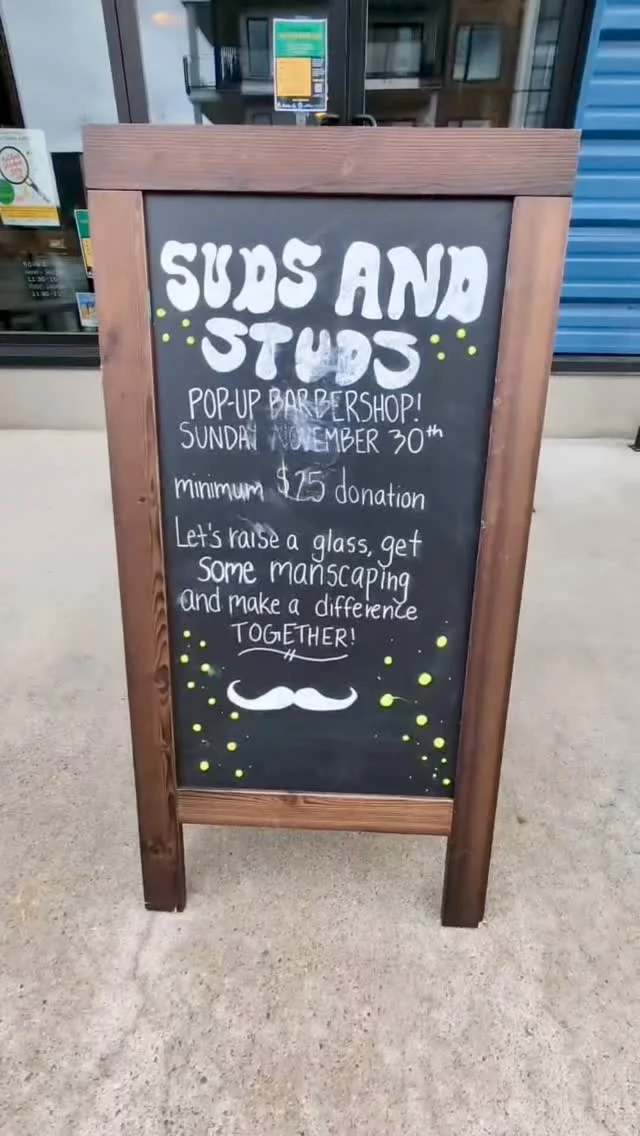 SUDS AND
STUDS
POP-UP BARBERSHOP!
SUNDAY NOVEMBER 30th
minimum $25 donation
Let's raise a glass, get
some manscaping
and make a difference
TOGETHER!